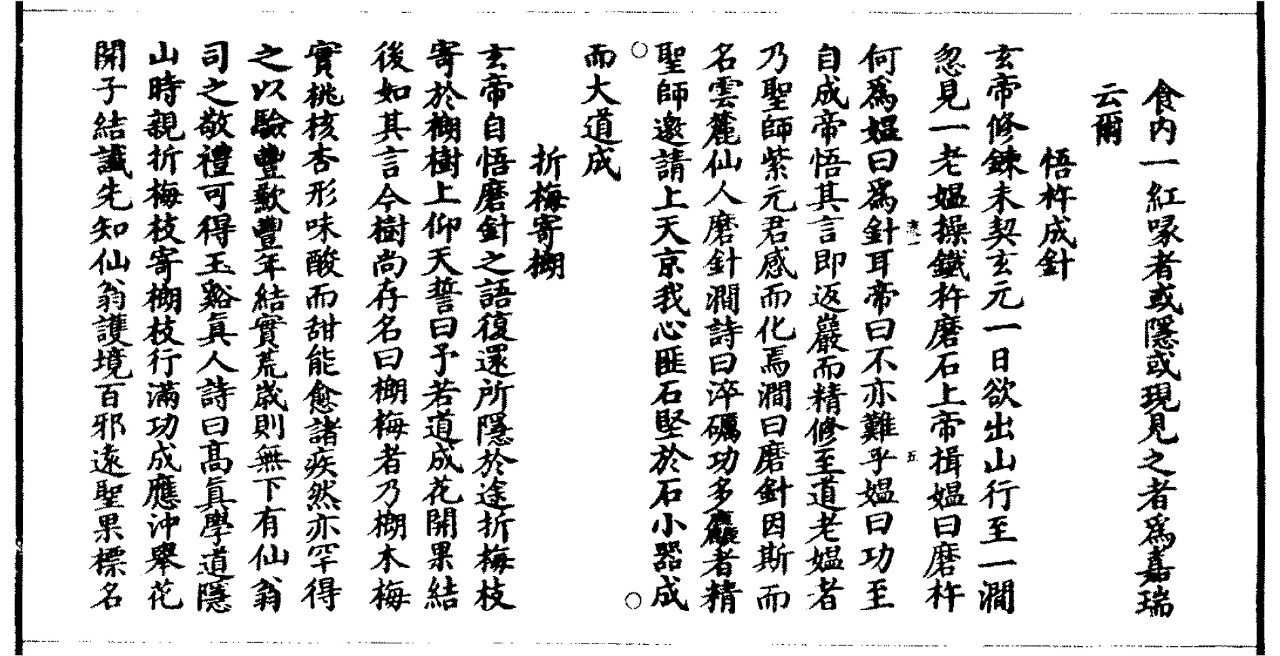 食内一紅喙者或隱或現見之者爲嘉瑞
云爾
悟杵成針
玄帝修鍊未契玄元一日欲出山行至一澗
忽見一老媼操鐵杵磨石上帝揖媼曰磨杵
何爲媼曰爲針耳帝曰不亦難乎媼曰功至
自成帝悟其言即返巖而精修至道老媼者
乃聖師紫元君感而化焉澗曰磨針因斯而
名雲麓仙人磨針澗詩曰淬礪功多麤者精
聖師邀請上天京我心匪石堅於石小器成
而大道成
折梅寄榔
玄帝自悟磨針之語復還所隱於途折梅枝
寄於榔樹上仰天誓曰予若道成花開果結
後如其言今樹尚存名曰榔梅者乃榔木梅
實桃核杏形味酸而甜能愈諸疾然亦罕得
之以驗豐歉豐年結實荒歲則無下有仙翁
司之敬禮可得玉谿眞人詩曰高眞學道隱
山時親折梅枝寄榔枝行滿功成應沖舉花
開子結讖先知仙翁護境百邪遠聖果標名